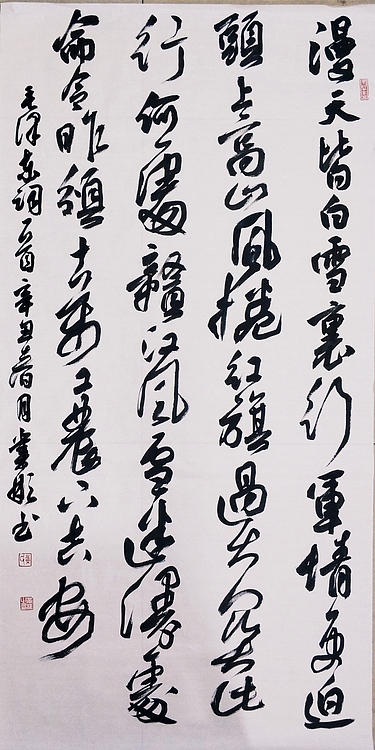 漫天皆白雪裏行軍情更迫
頭上高山風捲紅旗過大關此
行何處贛江風雪迷漫處
命令昨頒十萬工農下吉安
毛澤東詞一首辛丑春月書